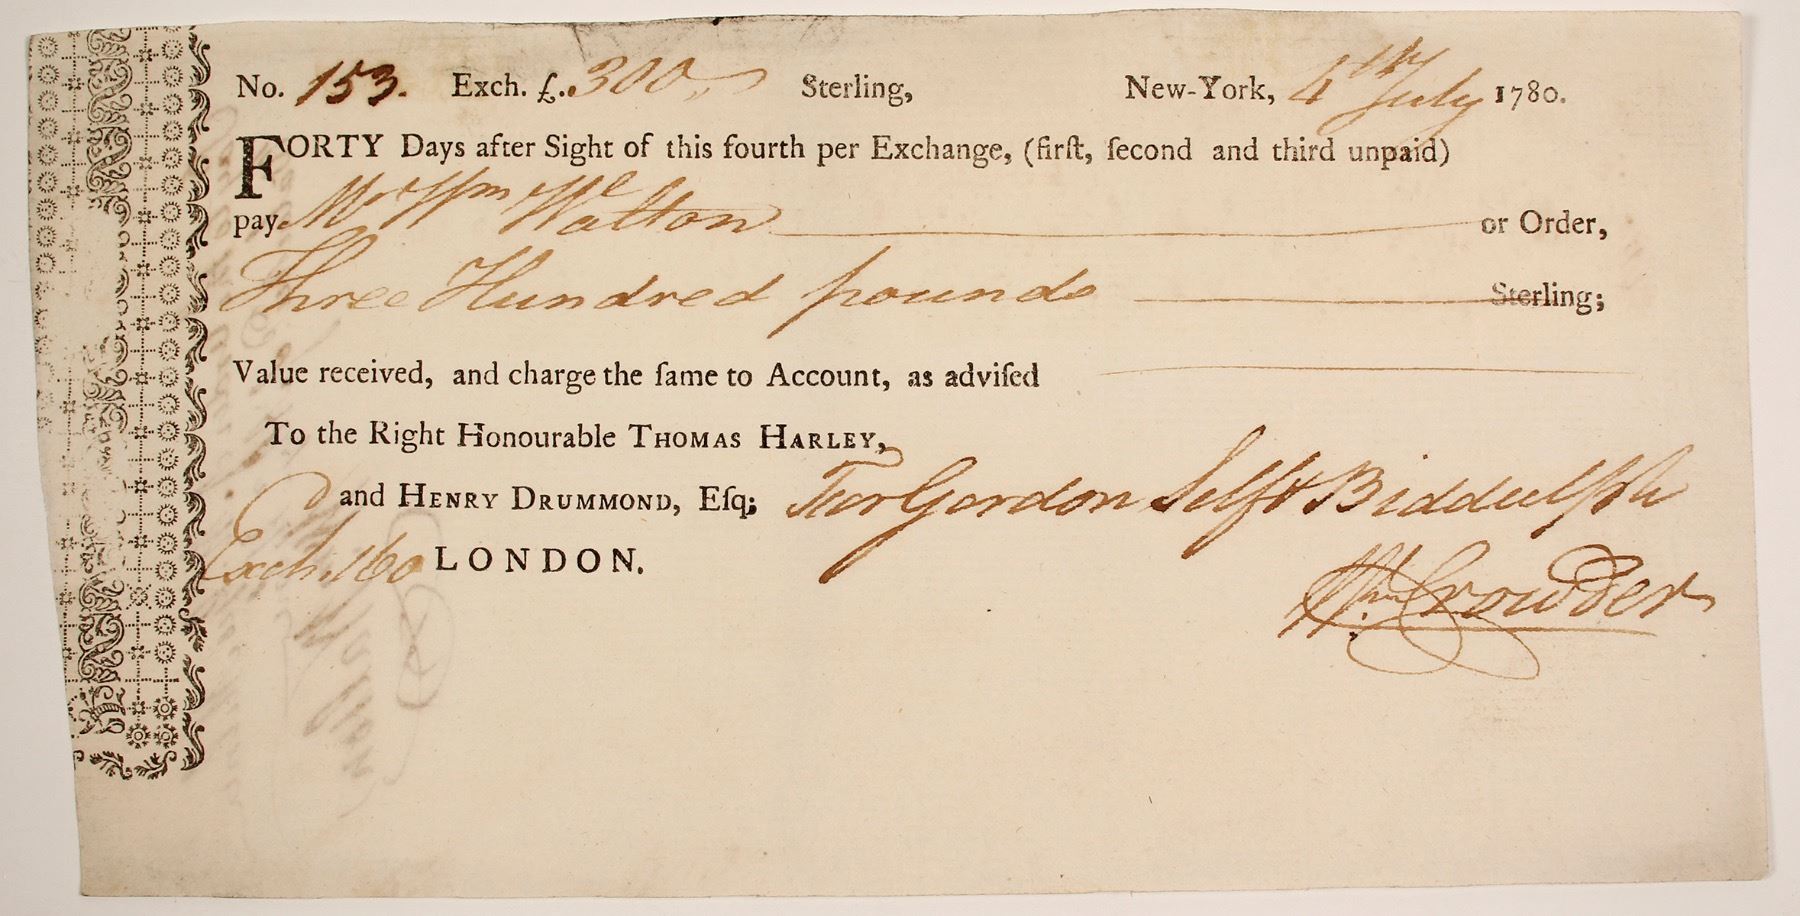 No. 153. Exch. £..300 Sterling, New-York, 4th July 1780.
FORTY Days after Sight of this fourth per Exchange, (firſt, ſecond and third unpaid)
pay Mr Wm Walton or Order,
Three Hundred pounds Sterling;
Value received, and charge the ſame to Account, as adviſed
To the Right Honourable THOMAS HARLEY,
and HENRY DRUMMOND, Eſq; For Gordon Self & Biddulph
Exch. 160 LONDON.
Wm. Crowder